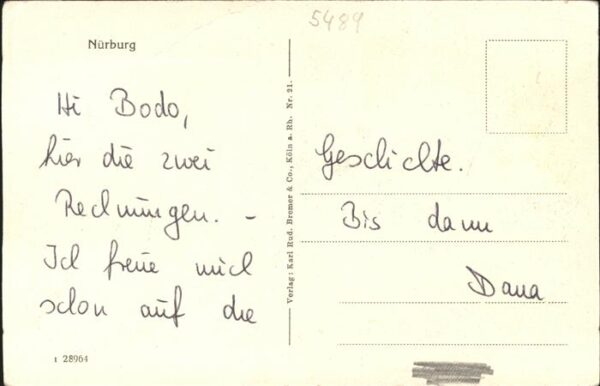 5489
Nürburg
Hi Bodo,
hier die zwei
Rechnungen. –
Ich freue mich
schon auf die
Geschichte.
Bis dann
Dana
Verlag: Karl Rud. Bremer & Co., Köln a. Rh. Nr. 21.
1 28964